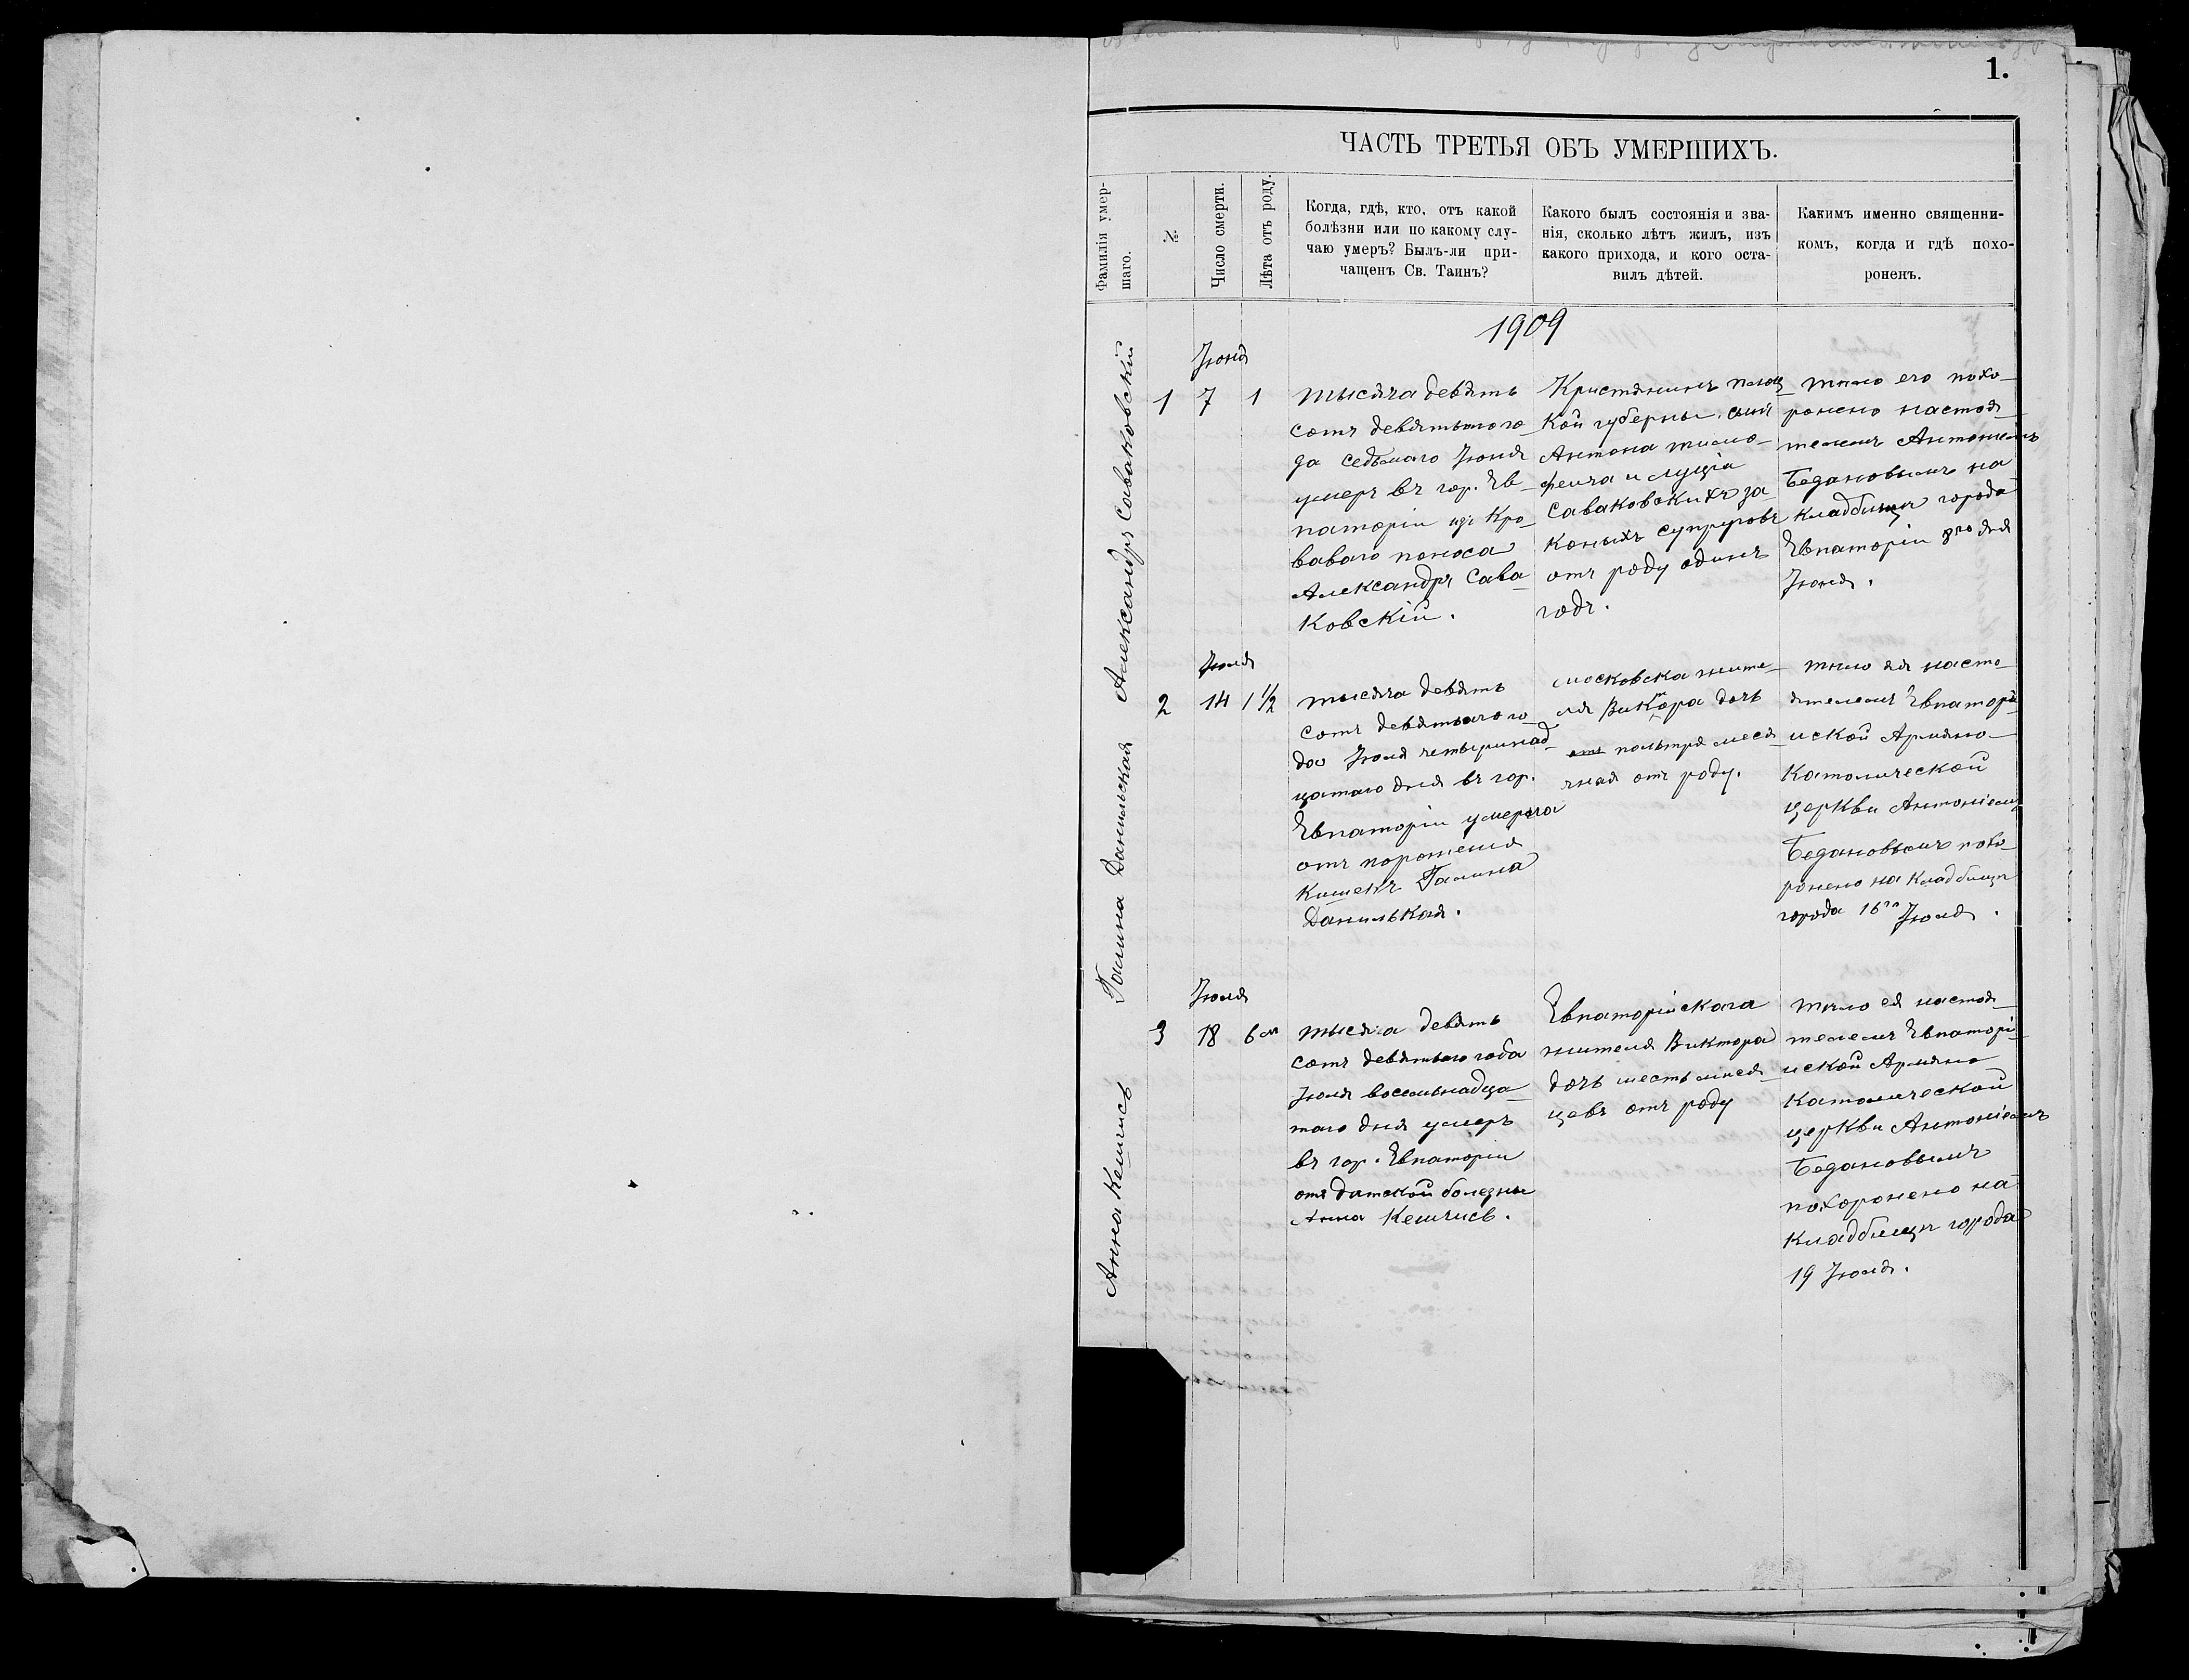 1.
ЧАСТЬ ТРЕТЬЯ ОБЪ УМЕРШИХЪ.
Фамилія умер-
шаго.
№
Число смерти.
Лѣта отъ роду.
Когда, гдѣ, кто, отъ какой
болѣзни или по какому слу-
чаю умеръ? Былъ-ли при-
чащенъ Св. Таинъ?
Какого былъ состоянія и зва-
нія, сколько лѣтъ жилъ, изъ
какого прихода, и кого оста-
вилъ дѣтей.
Какимъ именно священни-
комъ, когда и гдѣ похо-
роненъ.
1909
Александръ Саваковскій
Іюня
1 7 1
тысяча девять
сотъ девятыого го-
да седьмаго Іюня
умеръ въ гор. Ев-
паторіи изъ кро-
ваваго поноса
Александръ Сава-
ковскій.
Кристянинъ
кой губерны. сынъ
Антона тимо-
феича и луція
Саваковскихъ за
коныхъ супруговъ
отъ роду одинъ
годъ.
тѣло его похо-
ронено настоя-
телемъ Антониемъ
Богдановымъ на
кладбищѣ города
Евпаторіи 8го дня
Іюня.
Галина Данильская
Іюля
2 14 1 1/2
тысяча девять
сотъ девятаго го-
да Іюля четыринад-
цатаго дня въ гор.
Евпаторіи умерла
отъ порожения
кишекъ Галина
Данилькая.
московска жите-
ля Виктора дочь
польтря меся-
чная отъ роду.
тѣло ея насто-
ятелемъ Евпаторі-
иской Армяно-
Католической
церкви Антоніемъ
Богдановымъ похо-
ронено на кладбищѣ
города 16го Іюля.
Анна Кешчисъ
Іюля
3 18 6 м
тысяча девять
сотъ девятыаго года
Іюля восемьнадца-
таго дня умеръ
въ гор. Евпаторіи
отъ дитской болезны
Анна Кешчисъ.
Евпаторійскага
жителя Виктора
дочь шесть мися-
цевъ отъ роду
тѣло ея настоя-
телемъ Евпаторі-
иской Армяно
Католической
церкви Антоніемъ
Богдановымъ
похоронено на
кладбищѣ города
19 Іюля.